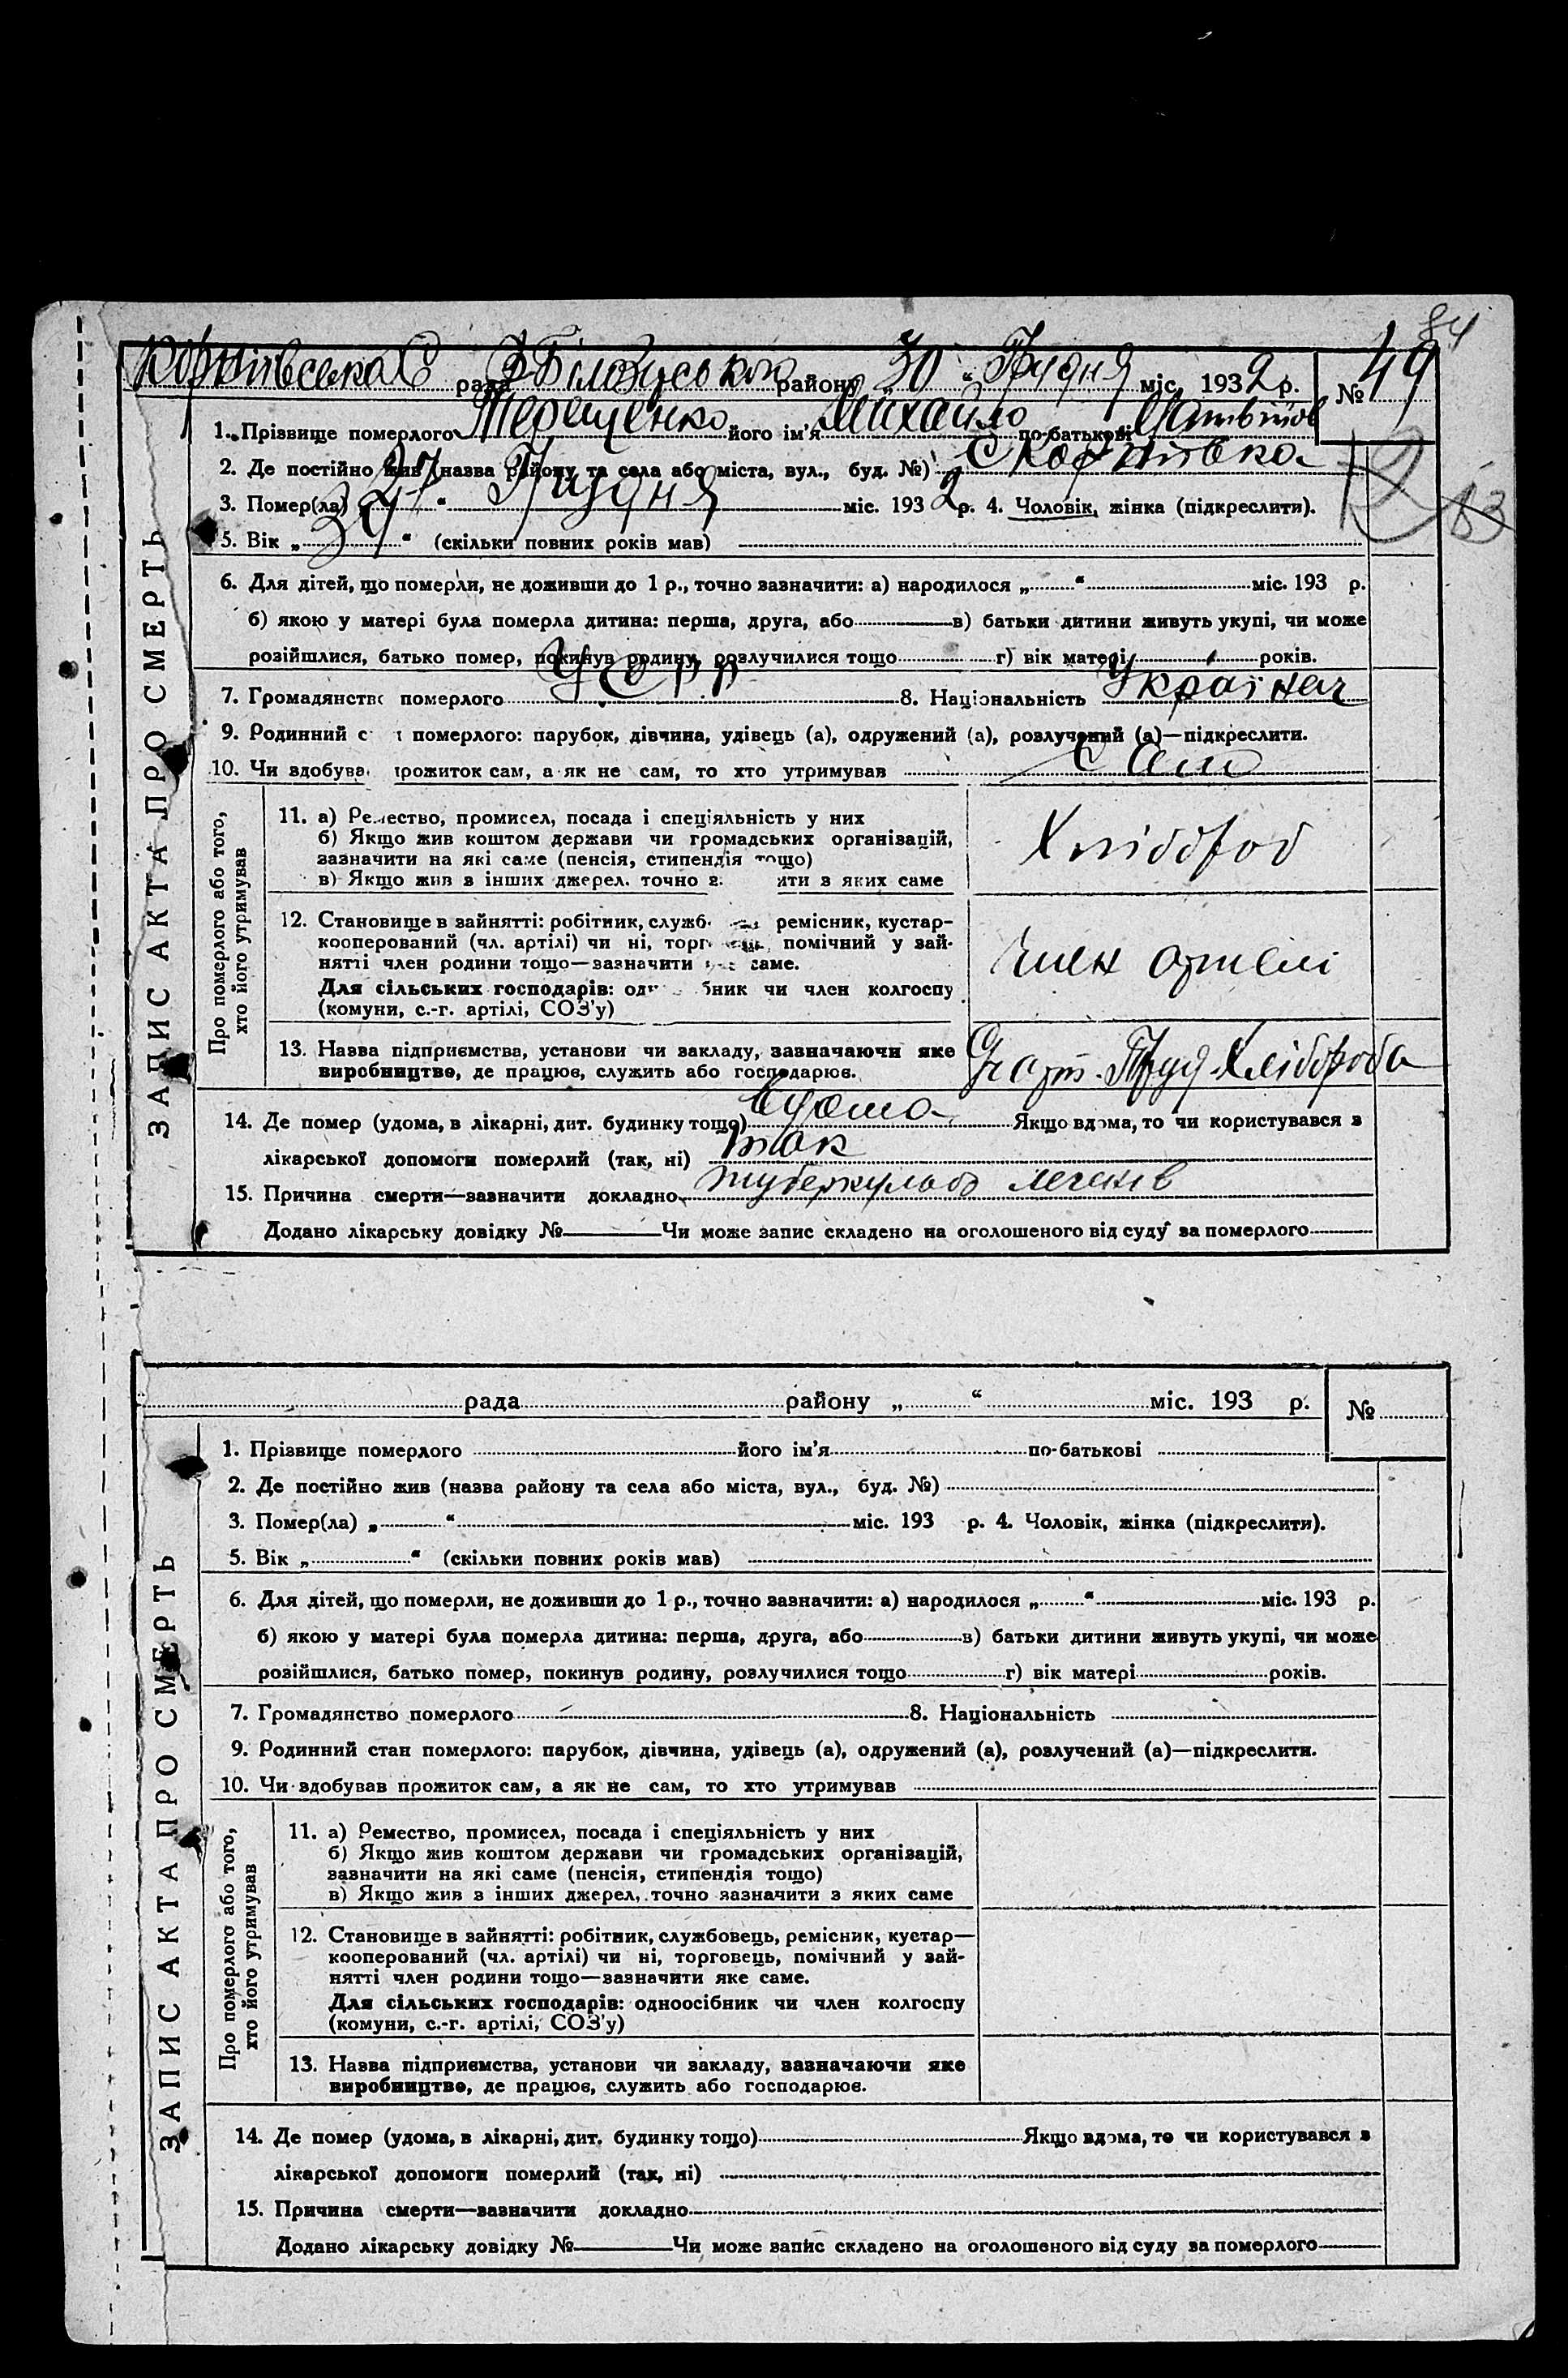 84
Юрпівська С рада З Білоцуського району „30“ Грудня міс. 1932 р. № 49
1. Прізвище померлого Терещенко його ім'я Михайло по-батькові
2. Де постійно жив (назва району та села або міста, вул., буд. №) С
3. Помер(ла) „27“ Грудня міс. 1932 р. 4. Чоловік, жінка (підкреслити).
12 83
5. Вік „39“ (скільки повних років мав)
6. Для дітей, що померли, не доживши до 1 р., точно зазначити: а) народилося „ “ міс. 193 р.
б) якою у матері була померла дитина: перша, друга, або в) батьки дитини живуть укупі, чи може
розійшлися, батько помер, покинув родину, розлучилися тощо г) вік матері років.
7. Громадянство померлого УСРР 8. Національність Українец
9. Родинний с т померлого: парубок, дівчина, удівець (а), одружений (а), розлучений (а)—підкреслити.
10. Чи здобува прожиток сам, а як не сам, то хто утримував Сам
ЗАПИС АКТА ПРО СМЕРТЬ
Про померлого або того, хто його утримував
11. а) Ремество, промисел, посада і спеціяльність у них
б) Якщо жив коштом держави чи громадських організацій,
зазначити на які саме (пенсія, стипендія тощо)
в) Якщо жив з інших джерел, точно з ити з яких саме
Хлібороб
12. Становище в зайнятті: робітник, служб ремісник, кустар-
кооперований (чл. артілі) чи ні, торг помічний у зай-
нятті член родини тощо—зазначити саме.
Для сільських господарів: од бник чи член колгоспу
(комуни, с.-г. артілі, СОЗ'у)
член артелі
13. Назва підприємства, установи чи закладу, зазначаючи яке
виробництво, де працює, служить або господарює.
арт. Труд Хлібороба
14. Де помер (удома, в лікарні, дит. будинку тощо) вдома Якщо вдома, то чи користувався з
лікарської допомоги померлий (так, ні) так
15. Причина смерти—зазначити докладно туберкульоз легенів
Додано лікарську довідку № Чи може запис складено на оголошеного від суду за померлого
рада району „ “ міс. 193 р. №
1. Прізвище померлого його ім'я по-батькові
2. Де постійно жив (назва району та села або міста, вул., буд. №)
3. Помер(ла) „ “ міс. 193 р. 4. Чоловік, жінка (підкреслити).
5. Вік „ “ (скільки повних років мав)
6. Для дітей, що померли, не доживши до 1 р., точно зазначити: а) народилося „ “ міс. 193 р.
б) якою у матері була померла дитина: перша, друга, або в) батьки дитини живуть укупі, чи може
розійшлися, батько помер, покинув родину, розлучилися тощо г) вік матері років.
7. Громадянство померлого 8. Національність
9. Родинний стан померлого: парубок, дівчина, удівець (а), одружений (а), розлучений (а)—підкреслити.
10. Чи здобував прожиток сам, а як не сам, то хто утримував
ЗАПИС АКТА ПРО СМЕРТЬ
Про померлого або того, хто його утримував
11. а) Ремество, промисел, посада і спеціяльність у них
б) Якщо жив коштом держави чи громадських організацій,
зазначити на які саме (пенсія, стипендія тощо)
в) Якщо жив з інших джерел, точно зазначити з яких саме
12. Становище в зайнятті: робітник, службовець, ремісник, кустар—
кооперований (чл. артілі) чи ні, торговець, помічний у зай-
нятті член родини тощо—зазначити яке саме.
Для сільських господарів: одноосібник чи член колгоспу
(комуни, с.-г. артілі, СОЗ'у)
13. Назва підприємства, установи чи закладу, зазначаючи яке
виробництво, де працює, служить або господарює.
14. Де помер (удома, в лікарні, дит. будинку тощо) Якщо вдома, то чи користувався з
лікарської допомоги померлий (так, ні)
15. Причина смерти—зазначити докладно
Додано лікарську довідку № Чи може запис складено на оголошеного від суду за померлого